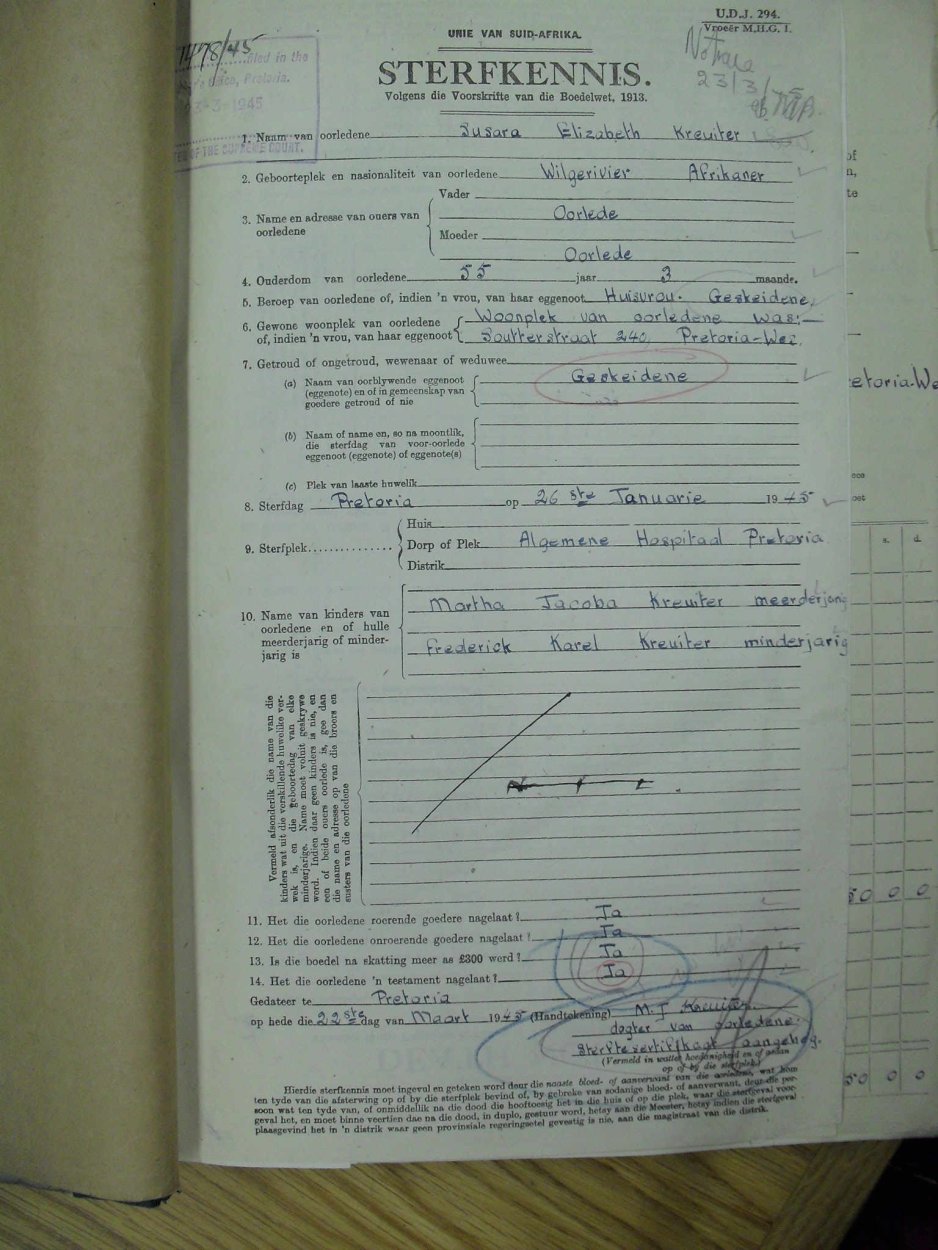 U.D.J. 294.
Vroeër M.H.G. 1.
UNIE VAN SUID-AFRIKA.
1478/45
STERFKENNIS.
Volgens die Voorskrifte van die Boedelwet, 1913.
23/3/45
filed in the
Office, Pretoria.
3-3-1945
OF THE SUPREME COURT.
1. Naam van oorledene Susara Elizabeth Kreuiter
2. Geboorteplek en nasionaliteit van oorledene Wilgerivier Afrikaner
3. Name en adresse van ouers van oorledene
Vader
Oorlede
Moeder
Oorlede
4. Ouderdom van oorledene 55 jaar 3 maande.
5. Beroep van oorledene of, indien 'n vrou, van haar eggenoot Huisvrou. Geskeidene.
6. Gewone woonplek van oorledene Woonplek van oorledene was:—
of, indien 'n vrou, van haar eggenoot Soutterstraat 240, Pretoria-Wes.
7. Getroud of ongetroud, wewenaar of weduwee
(a) Naam van oorblywende eggenoot Geskeidene
(eggenote) en of in gemeenskap van
goedere getroud of nie
(b) Naam of name en, so na moontlik,
die sterfdag van voor-oorlede
eggenoot (eggenote) of eggenote(s)
(c) Plek van laaste huwelik
8. Sterfdag Pretoria op 26 ste Januarie 1945
9. Sterfplek
Huis
Dorp of Plek Algemene Hospitaal Pretoria
Distrik
10. Name van kinders van
oorledene en of hulle
meerderjarig of minder-
jarig is
Martha Jacoba Kreuiter meerderjarig
Frederick Karel Kreuiter minderjarig
Vermeld afsonderlik die name van die
kinders wat uit die verskillende huwelike ver-
wek is, en die geboortedag van elke
minderjarige. Name moet voluit geskrywe
word. Indien daar geen kinders is nie, en
een of beide ouers oorlede is, gee dan
die name en adresse op van die broers en
susters van die oorledene
N i l.
11. Het die oorledene roerende goedere nagelaat? Ja
12. Het die oorledene onroerende goedere nagelaat? Ja
13. Is die boedel na skatting meer as £300 werd? Ja
14. Het die oorledene 'n testament nagelaat? Ja
Gedateer te Pretoria
op hede die 22ste dag van Maart 1945 (Handtekening) M. J. Kreuiter
dogter van oorledene.
Sterftesertifikaat aangeheg.
(Vermeld in watter hoedanigheid en of gedan
op of by die sterfplek)
Hierdie sterfkennis moet ingevul en geteken word deur die naaste bloed- of aanverwant van die oorledene, wat hom
ten tyde van die afsterwing op of by die sterfplek bevind of, by gebreke van sodanige bloed- of aanverwant, deur die per-
soon wat ten tyde van, of onmiddellik na die dood die hooftoesig het in die huis of op die plek, waar die sterfgeval voor-
geval het, en moet binne veertien dae na die dood, in duplo, gestuur word, hetsy aan die Meester, hetsy indien die sterfgeval
plaasgevind het in 'n distrik waar geen provinsiale regeringsetel gevestig is nie, aan die magistraat van die distrik.
of
n,
te
etoria-We
s. d.
50 0 0
50 0 0